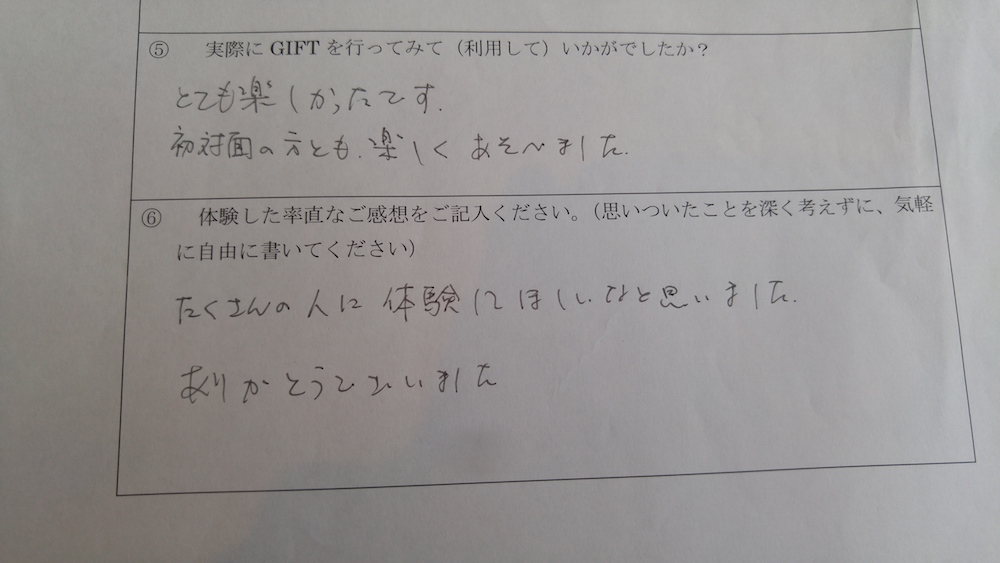 ⑤ 実際に GIFT を行ってみて（利用して）いかがでしたか？
とても楽しかったです.
初対面の方とも.楽しくあそべました.
⑥ 体験した率直なご感想をご記入ください。（思いついたことを深く考えずに、気軽
に自由に書いてください）
たくさんの人に体験してほしいなと思いました.
ありがとうございました